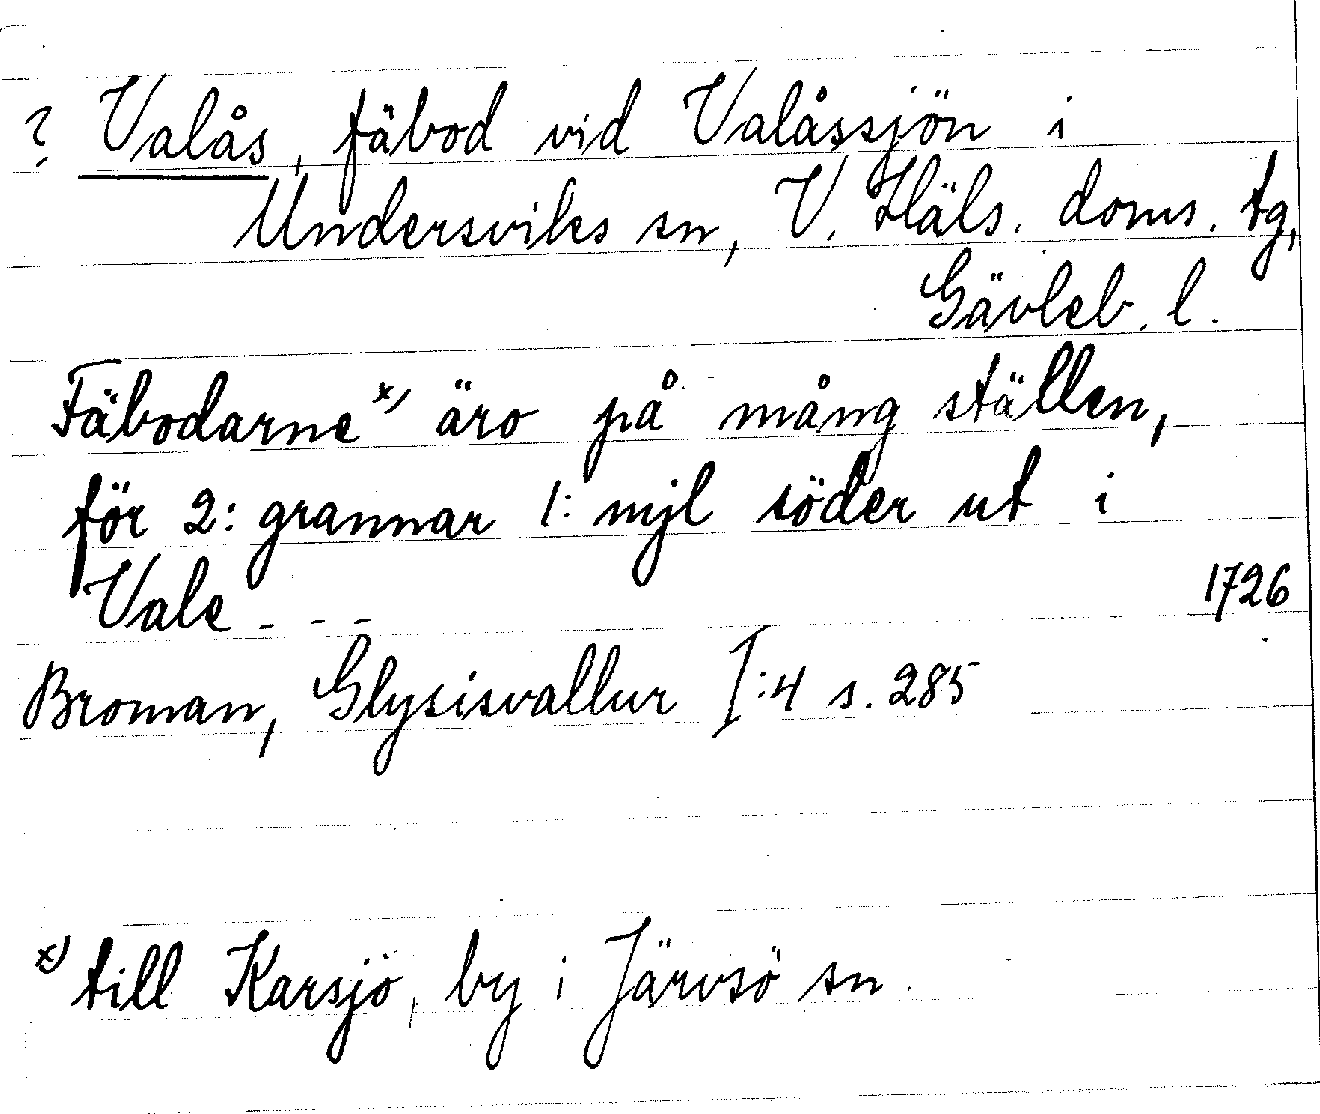 ? Valås, fäbod vid Valåssjön i
Undersviks sn, V. Häls. doms. tg,
Gävleb. l.
Fäbodarne x) äro på mång ställen,
för 2: grannar 1: mjl söder ut i
Vale - - -
1726
Broman, Glysisvallur I:4 s. 285
x) till Karsjö, by i Järvsö sn.